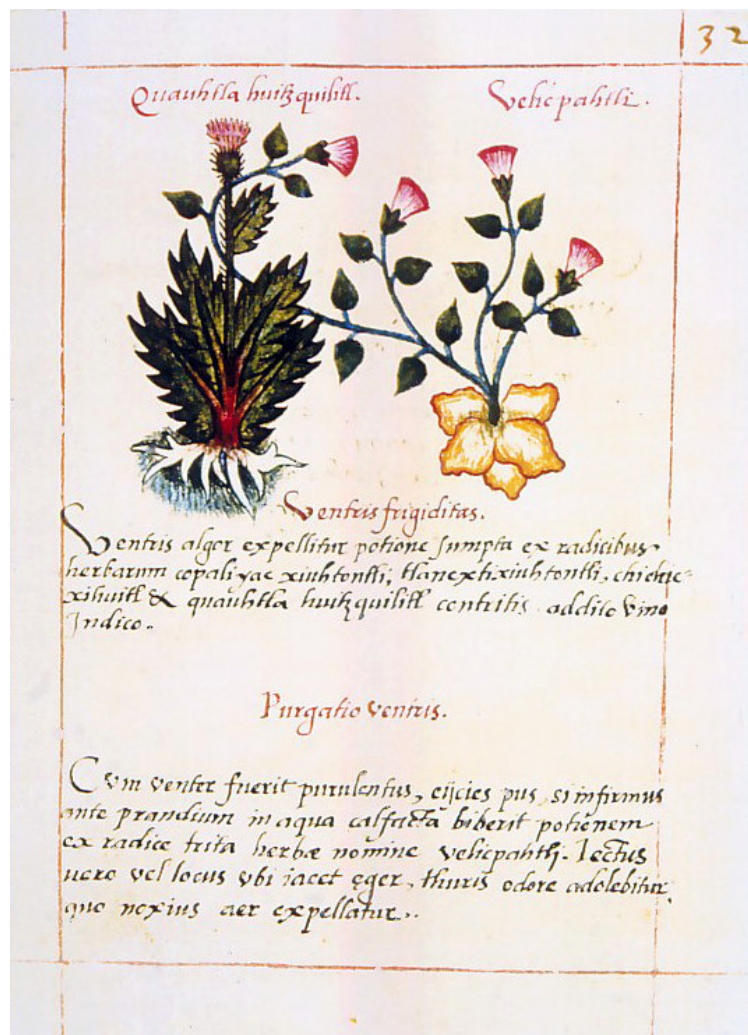 32
Quauhtla huitzquilitl.
Velicpahtli.
Ventris frigiditas.
Ventris algor expellitur potione sumpta ex radicibus
herbarum copaliyac xiuhtontli, tlanextixiuhtontli, chichic-
xihuitl & quauhtla huitzquilitl contritis addito vino
Indico.
Purgatio ventris.
Cvm venter fuerit purulentus, eijcies pus, si infirmus
ante prandium in aqua calfacta biberit potionem
ex radice trita herbæ nomine velicpahtli. Lectus
uero vel locus vbi iacet ęger, thuris odore adolebitur,
quo noxius aer expellatur.